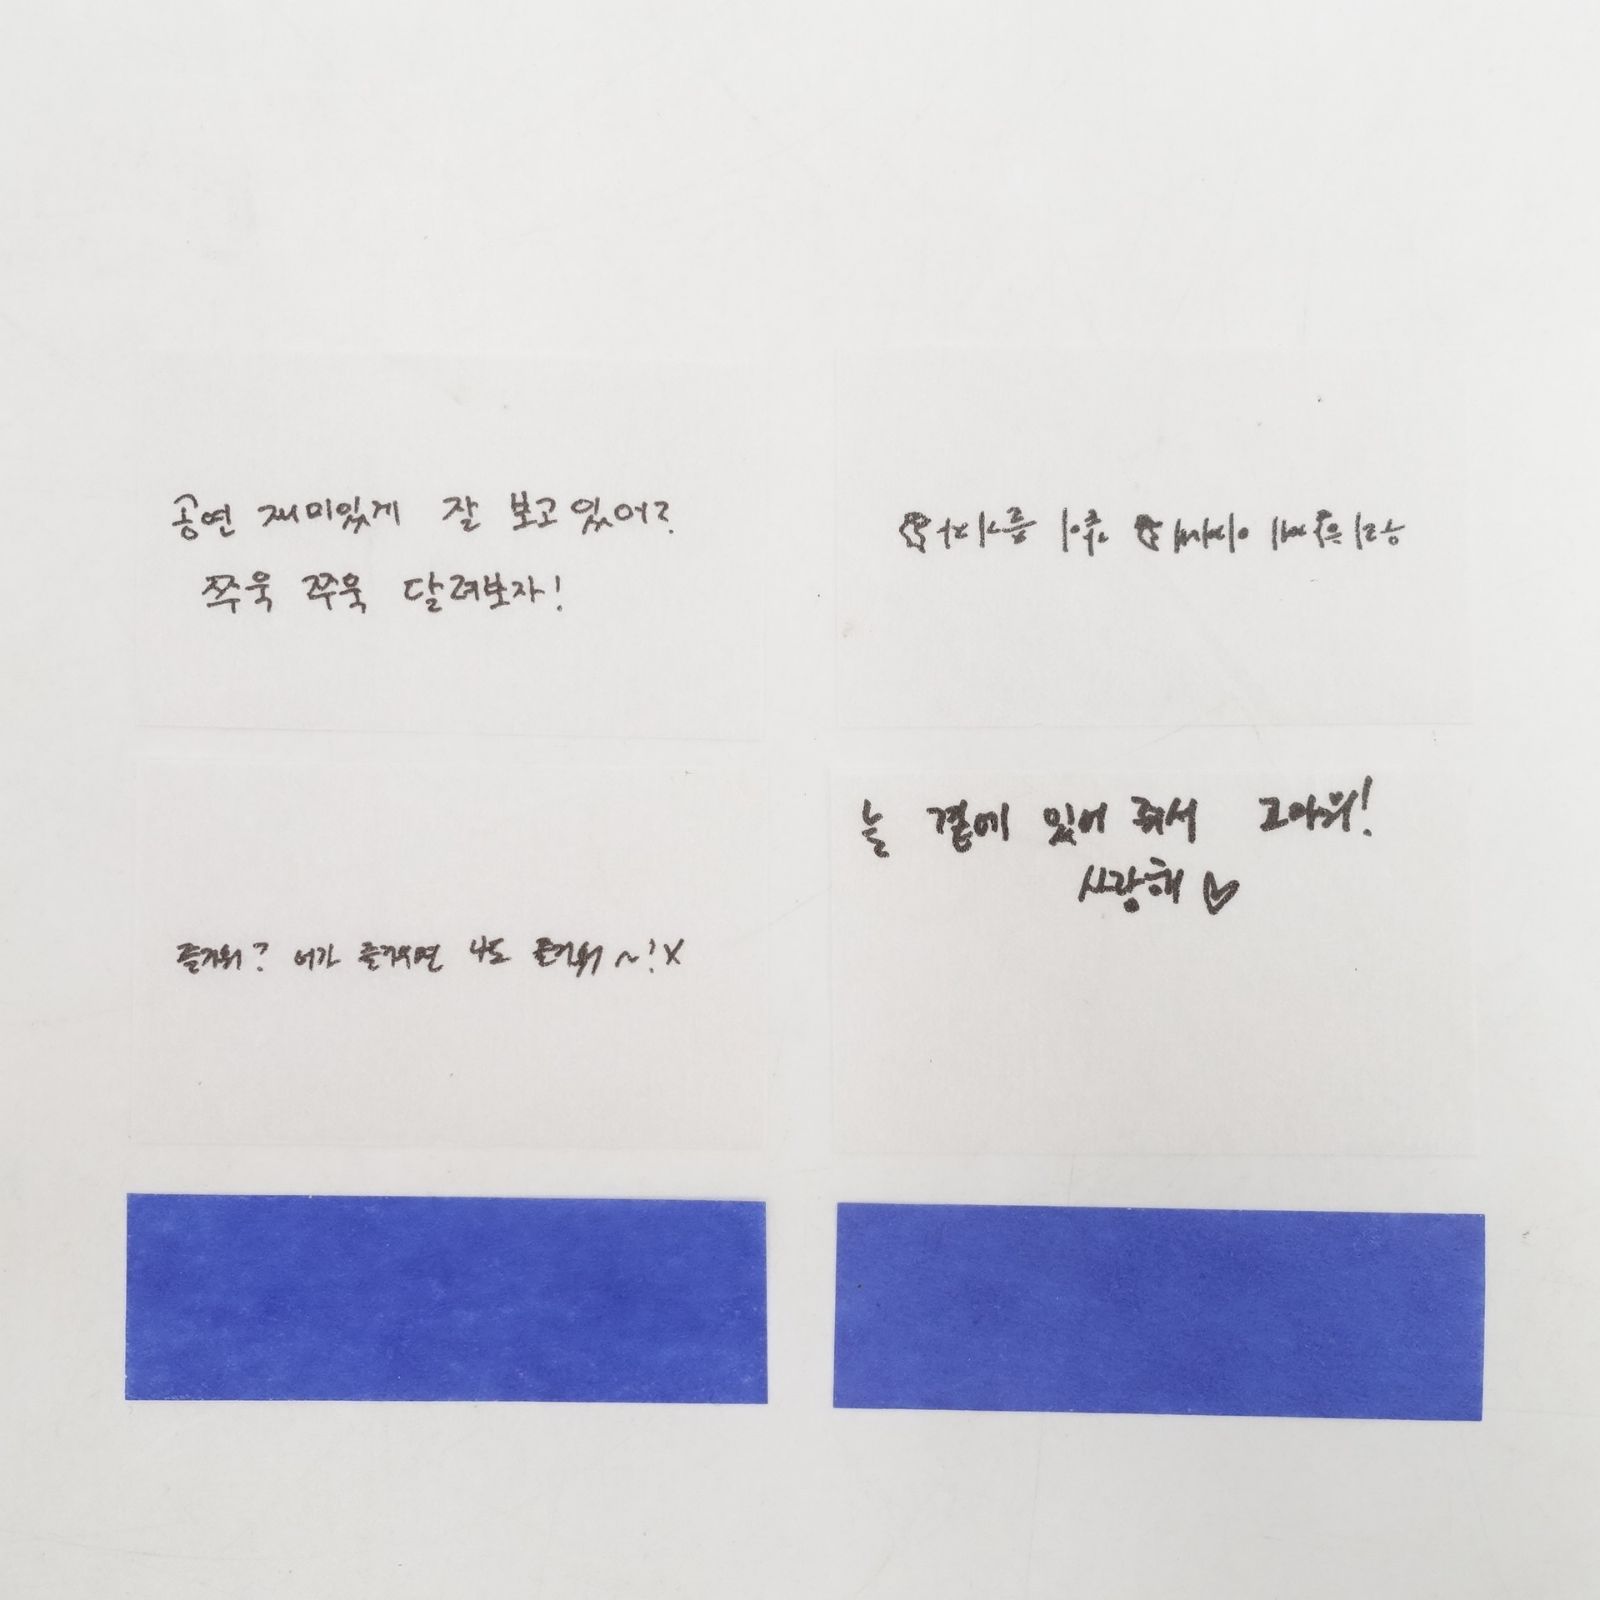 공연 재미있게 잘 보고 있어?
쭈욱 쭈욱 달려보자!
즐거워? 너가 즐거우면 나도 즐거워~!X
늘 곁에 있어 줘서 고마워!
사랑해 ♡